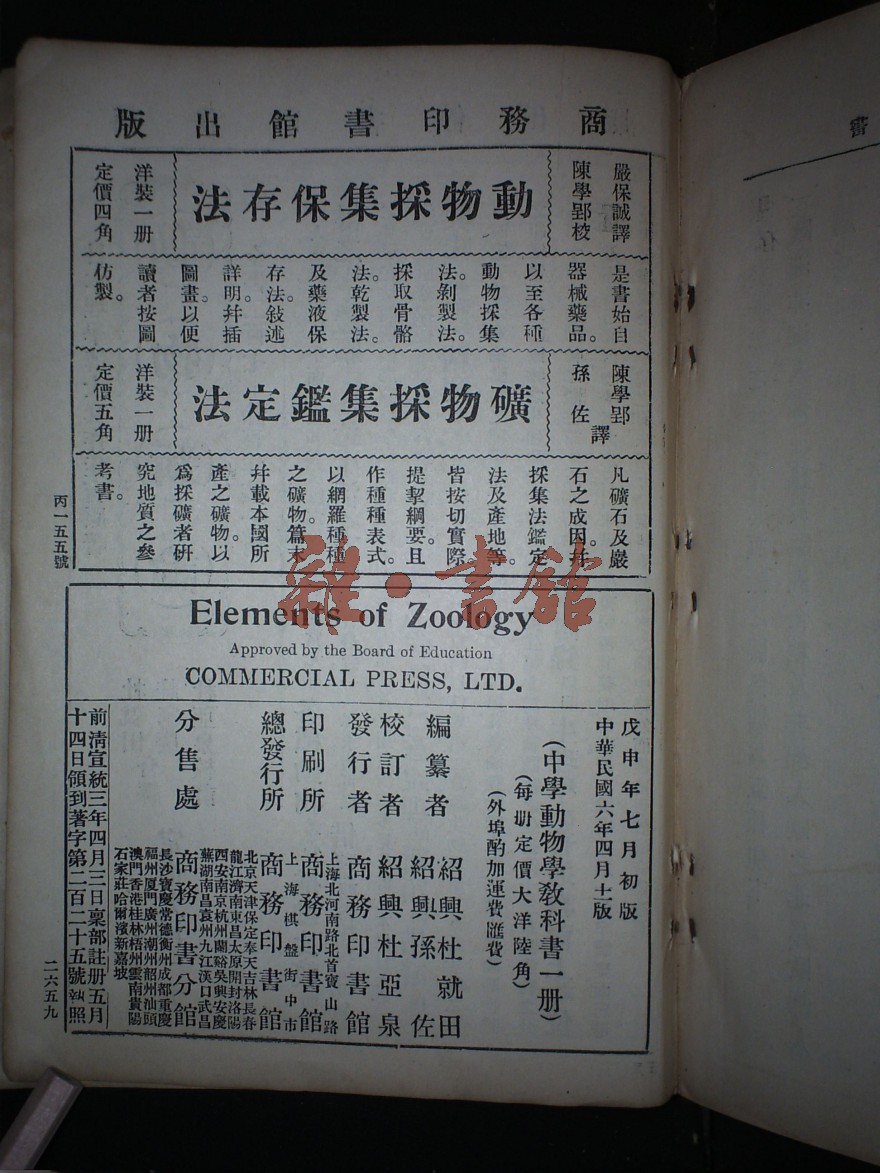 商務印書館出版
嚴保誠譯
陳學郢校
動物採集保存法
洋裝一册
定價四角
是書始自
器械藥品。
以至各種
動物採集
法。剝製法。
採取骨骼
法。乾製法。
及藥液保
存法。敍述
詳明。幷插
圖畫。以便
讀者按圖
仿製。
陳學郢
孫佐
譯
礦物採集鑑定法
洋裝一册
定價五角
凡礦石及巖
石之成因。幷
採集法鑑定
法及產地等。
皆按切實際
提挈綱要。且
作種種表式。
以網羅種種
之礦物。篇末
幷載本國所
產之礦物。以
爲採礦者研
究地質之參
考書。
丙一五五號
雜·書館
Elements of Zoology
Approved by the Board of Education
COMMERCIAL PRESS, LTD.
戊申年七月初版
中華民國六年四月十二版
(中學動物學教科書一册)
(每册定價大洋陸角)
(外埠酌加運費匯費)
編纂者 紹興杜就田
紹興孫佐
校訂者 紹興杜亞泉
發行者 商務印書館
上海北河南路北首寶山路
印刷所 商務印書館
上海棋盤街中市
總發行所 商務印書館
北京天津保定奉天吉林長春
龍江濟南東昌太原開封洛陽
西安南京杭州蘭谿吳興安慶
蕪湖南昌袁州九江漢口武昌
分售處 商務印書分館
長沙寶慶常德衡州成都重慶
福州廈門廣州潮州韶州汕頭
澳門香港桂林梧州雲南貴陽
石家莊哈爾濱新嘉坡
前清宣統三年四月三日稟部註册五月
十四日領到著字第二百二十五號執照
二六五九